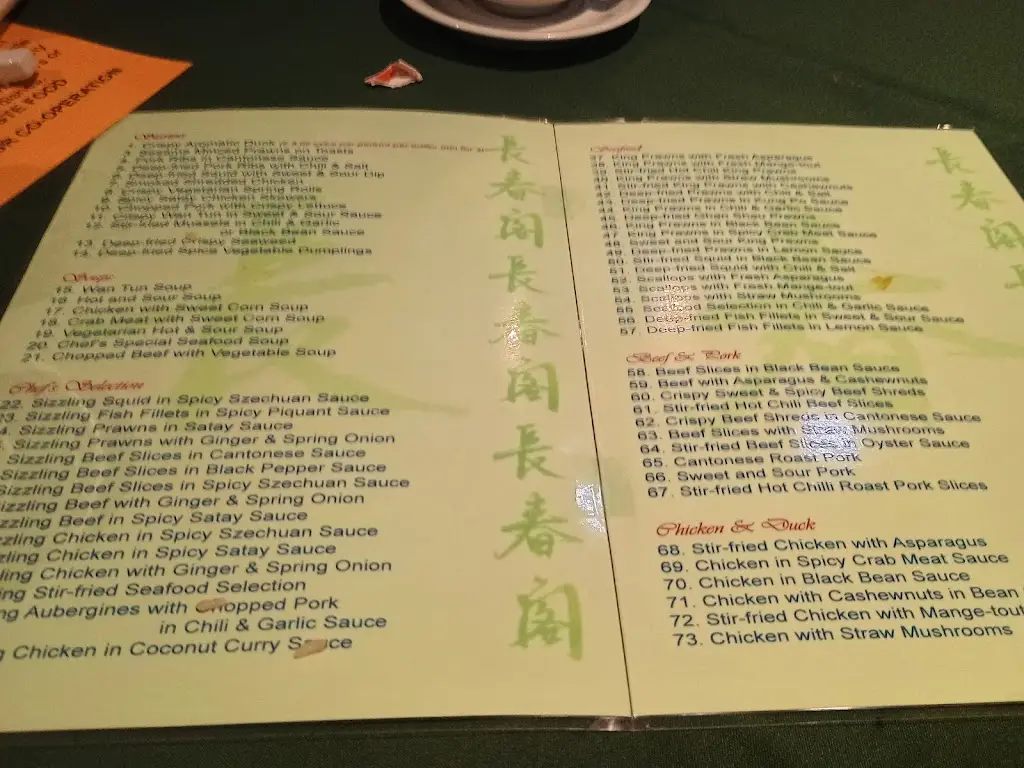 STE FOOD
UR CO-OPERATION
1. Crispy Aromatic Duck
Pork Ribs in Cantonese Sauce
Crispy Wan Tun in Sweet & Sour Sauce
12. Stir-fried Mussels in Chilli & Garlic
or Black Bean Sauce
13. Deep-fried Crispy Seaweed
14. Deep-fried Spice Vegetable Dumplings
Soups
15. Wan Tun Soup
16. Hot and Sour Soup
17. Chicken with Sweet Corn Soup
18. Crab Meat with Sweet Corn Soup
19. Vegetarian Hot & Sour Soup
20. Chef's Special Seafood Soup
21. Chopped Beef with Vegetable Soup
Chef's Selection
22. Sizzling Squid in Spicy Szechuan Sauce
23. Sizzling Fish Fillets in Spicy Piquant Sauce
4. Sizzling Prawns in Satay Sauce
. Sizzling Prawns with Ginger & Spring Onion
Sizzling Beef Slices in Cantonese Sauce
Sizzling Beef Slices in Black Pepper Sauce
izzling Beef Slices in Spicy Szechuan Sauce
izzling Beef with Ginger & Spring Onion
zzling Beef in Spicy Satay Sauce
zling Chicken in Spicy Szechuan Sauce
zling Chicken in Spicy Satay Sauce
ling Chicken with Ginger & Spring Onion
ing Stir-fried Seafood Selection
ng Aubergines with Chopped Pork
in Chili & Garlic Sauce
g Chicken in Coconut Curry Sauce
長春閣長春閣長春閣
Seafood
37. King Prawns with Fresh Asparagus
38. King Prawns with Fresh Mange-tout
39. Stir-fried Hot Chili King Prawns
40. King Prawns with Straw Mushrooms
41. Stir-fried King Prawns with Cashewnuts
42. Deep-fried Prawns with Chili & Salt
43. Deep-fried Prawns with Kung Po Sauce
44. King Prawns in Chili & Garlic Sauce
45. Deep-fried Shan Shau Prawns
46. King Prawns in Black Bean Sauce
47. King Prawns in Spicy Crab Meat Sauce
48. Sweet and Sour King Prawns
49. Deep-fried Prawns in Lemon Sauce
50. Stir-fried Squid in Black Bean Sauce
51. Deep-fried Squid with Chili & Salt
52. Scallops with Fresh Asparagus
53. Scallops with Fresh Mange-tout
54. Scallops with Straw Mushrooms
55. Seafood Selection in Chili & Garlic Sauce
56. Deep-fried Fish Fillets in Sweet & Sour Sauce
57. Deep-fried Fish Fillets in Lemon Sauce
Beef & Pork
58. Beef Slices in Black Bean Sauce
59. Beef with Asparagus & Cashewnuts
60. Crispy Sweet & Spicy Beef Shreds
61. Stir-fried Hot Chili Beef Slices
62. Crispy Beef Shreds in Cantonese Sauce
63. Beef Slices with Straw Mushrooms
64. Stir-fried Beef Slices in Oyster Sauce
65. Cantonese Roast Pork
66. Sweet and Sour Pork
67. Stir-fried Hot Chilli Roast Pork Slices
Chicken & Duck
68. Stir-fried Chicken with Asparagus
69. Chicken in Spicy Crab Meat Sauce
70. Chicken in Black Bean Sauce
71. Chicken with Cashewnuts in Bean
72. Stir-fried Chicken with Mange-tout
73. Chicken with Straw Mushrooms
長春閣